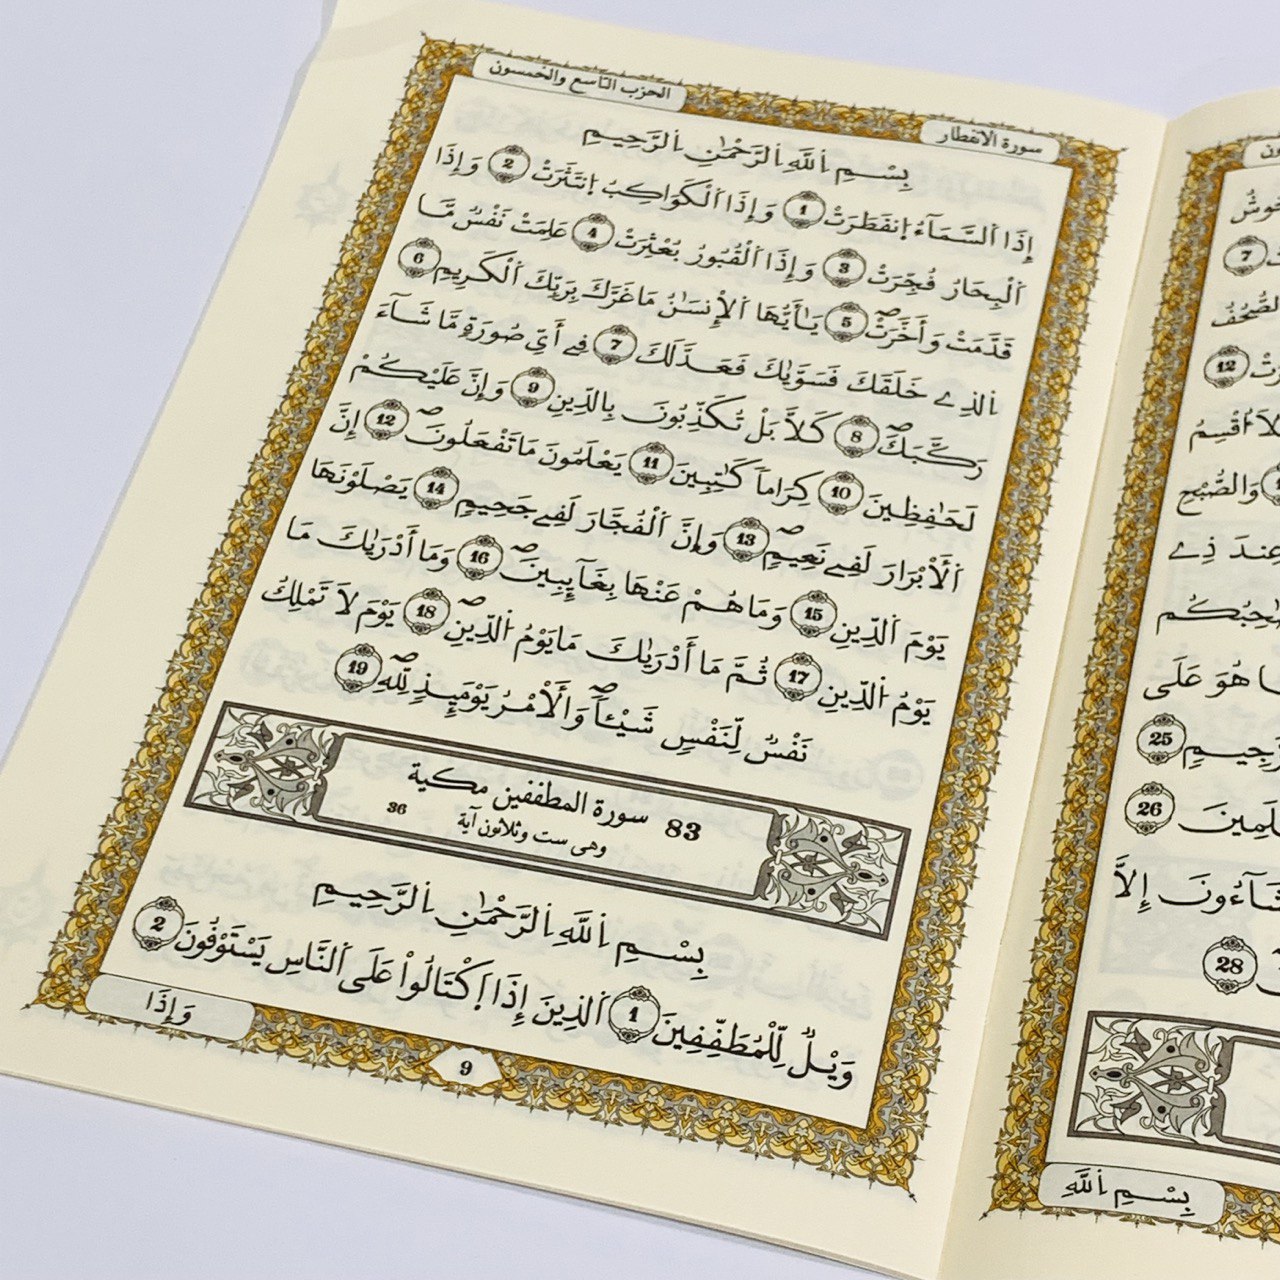 سورة الانفطار
الحزب التاسع والخمسون
بِسْمِ اِ۬للَّهِ اِ۬لرَّحْمَٰنِ اِ۬لرَّحِيمِ
إِذَا اَ۬لسَّمَآءُ اُ۪نفَطَرَتْ 1 وَإِذَا اَ۬لْكَوَاكِبُ اُ۪نتَثَرَتْ 2 وَإِذَا
اَ۬لْبِحَارُ فُجِّرَتْ 3 وَإِذَا اَ۬لْقُبُورُ بُعْثِرَتْ 4 عَلِمَتْ نَفْسٌ مَّا
قَدَّمَتْ وَأَخَّرَتْ 5 يَٰأَيُّهَا اَ۬لْإِنسَٰنُ مَا غَرَّكَ بِرَبِّكَ اَ۬لْكَرِيمِ 6
اِ۬لذِے خَلَقَكَ فَسَوَّيٰكَ فَعَدَّلَكَ 7 فِے أَيِّ صُورَةٍ مَّا شَآءَ
رَكَّبَكَ 8 كَلَّا بَلْ تُكَذِّبُونَ بِالدِّينِ 9 وَإِنَّ عَلَيْكُمْ
لَحَٰفِظِينَ 10 كِرَاماً كَٰتِبِينَ 11 يَعْلَمُونَ مَا تَفْعَلُونَ 12 إِنَّ
اَ۬لْأَبْرَارَ لَفِے نَعِيمٍ 13 وَإِنَّ اَ۬لْفُجَّارَ لَفِے جَحِيمٍ 14 يَصْلَوْنَهَا
يَوْمَ اَ۬لدِّينِ 15 وَمَا هُمْ عَنْهَا بِغَآئِبِينَ 16 وَمَا أَدْرَيٰكَ مَا
يَوْمُ اُ۬لدِّينِ 17 ثُمَّ مَا أَدْرَيٰكَ مَا يَوْمُ اُ۬لدِّينِ 18 يَوْمَ لَا تَمْلِكُ
نَفْسٌ لِّنَفْسٍ شَيْـٔاً وَالْأَمْرُ يَوْمَئِذٍ لِّلهِ 19
83 سورة المطففين مكية
وهى ست وثلاثون آية 36
بِسْمِ اِ۬للَّهِ اِ۬لرَّحْمَٰنِ اِ۬لرَّحِيمِ
وَيْلٌ لِّلْمُطَفِّفِينَ 1 اَ۬لذِينَ إِذَا اَ۪كْتَالُواْ عَلَى اَ۬لنَّاسِ يَسْتَوْفُونَ 2
وَإِذَا
9
7
12
وَالصُّبْحِ
عِندَ ذِے
هُوَ عَلَى
25
26
إِلَّا
28
بِسْمِ اِ۬للَّهِ